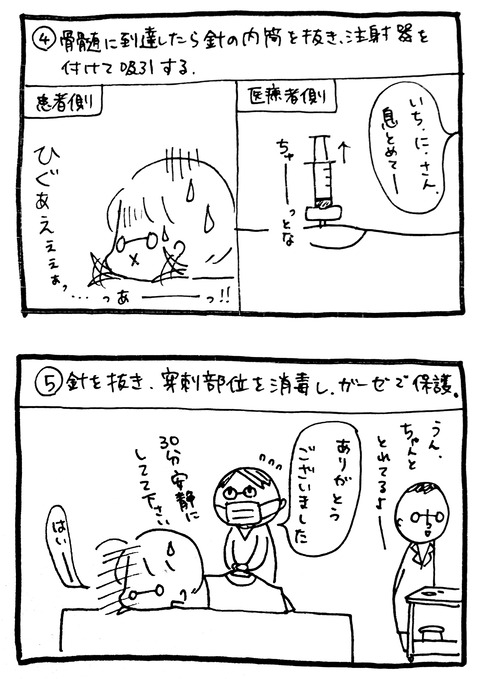 ④骨髄に到達したら針の内筒を抜き、注射器を
付けて吸引する.
患者側
ひぐあえぇぇぇぉっ...っあーっ!!
医療者側
いち.に.さん.
息とめてー
ちゅーっとな
⑤針を抜き、穿刺部位を消毒し、ガーゼで保護。
うん.
ちゃんと
とれてるよー
ありがとう
ございました
30分安静に
してて下さい
はいー